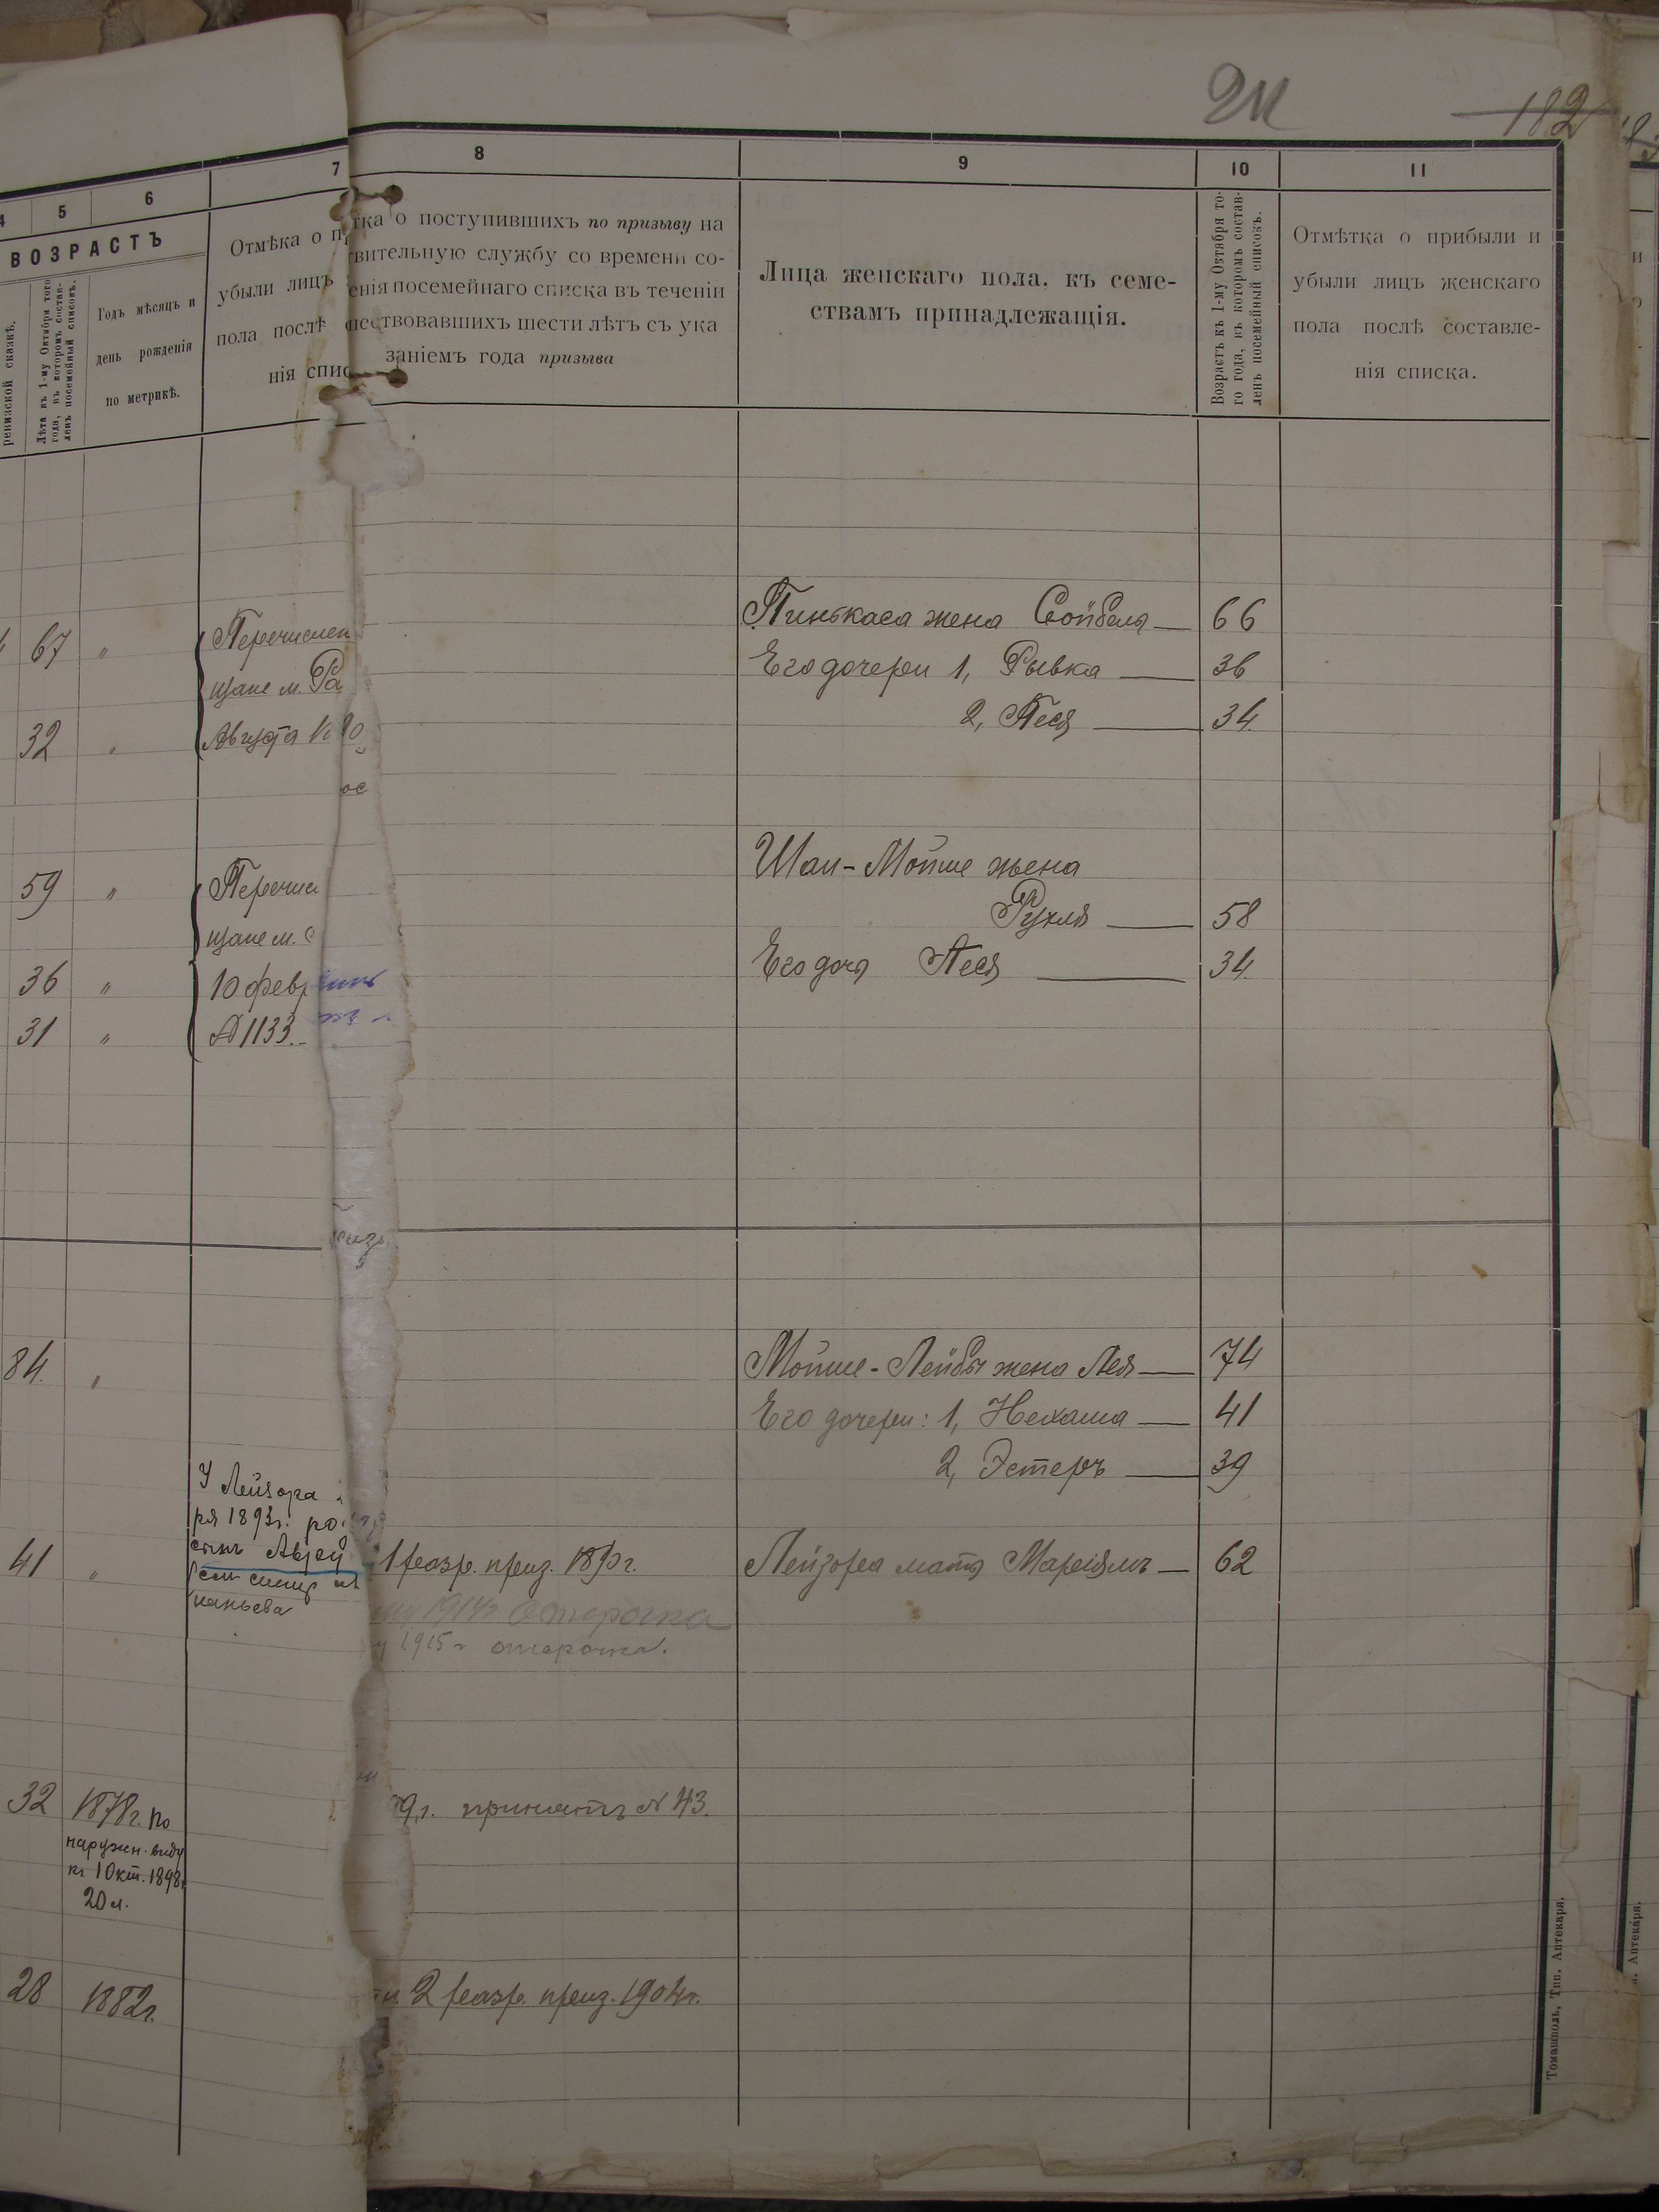 211
182
4 5 6 7
ВОЗРАСТЪ
ревизской сказкѣ.
Лѣта къ 1-му Октября того
года, въ которомъ состав-
ленъ посемейный списокъ.
Годъ мѣсяцъ и
день рожденія
по метрикѣ.
Отмѣка о п
убыли лицъ
пола послѣ
нія спис
8 9 10 11
тка о поступившихъ по призыву на
вительную службу со времени со-
енія посемейнаго списка въ теченіи
шествовавшихъ шести лѣтъ съ ука
заніемъ года призыва
Лица женскаго пола, къ семе-
ствамъ принадлежащія.
Возрастъ къ 1-му Октября то-
го года, въ которомъ состав-
ленъ посемейный списокъ.
Отмѣтка о прибыли и
убыли лицъ женскаго
пола послѣ составле-
нія списка.
67 " Перечислен
щане м. Ра
32 " Августа
59 " Перечис
щане м.
36 " 10 февр
31 " №1133.
Пинькаса жена Сойбеля — 66
Его дочери 1, Рывка — 36
2, Песя — 34.
Шаи-Мойше жена
Рухля — 58
Его дочь Песя — 34.
84. "
Мойше-Лейбы жена Лея — 74
Его дочери: 1, Нехама — 41
2, Эстеръ — 39
У Лейзора
ря 1893г. ро
41 " сынъ
1 разр. приз. 1890г.
Лейзора мать Маріямъ — 62
1914г отсрочка
1915г отсрочка.
32 1878г. по
наружн. виду
къ 1 Окт. 1898г
20 л.
9г. принятъ №43.
28 1882г.
2 разр. приз. 1904г.
Томашполь, Тип. Аптекаря.
. Аптекаря.